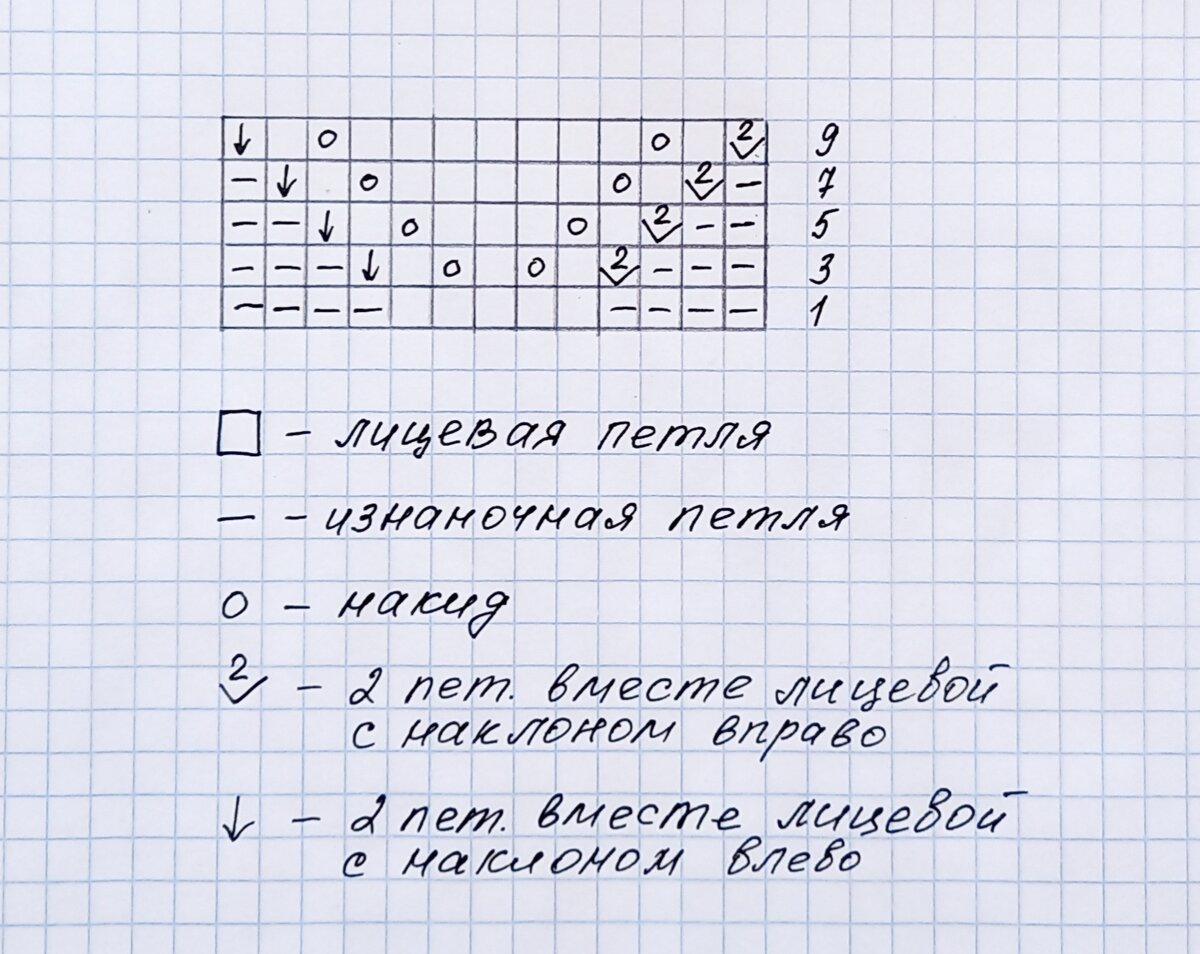 ↓ o o 2 9
– ↓ o o 2 – 7
– – ↓ o o 2 – – 5
– – – ↓ o o 2 – – – 3
– – – – – – – – 1
□ – лицевая петля
– – изнаночная петля
о – накид
2 – 2 пет. вместе лицевой
с наклоном вправо
↓ – 2 пет. вместе лицевой
с наклоном влево